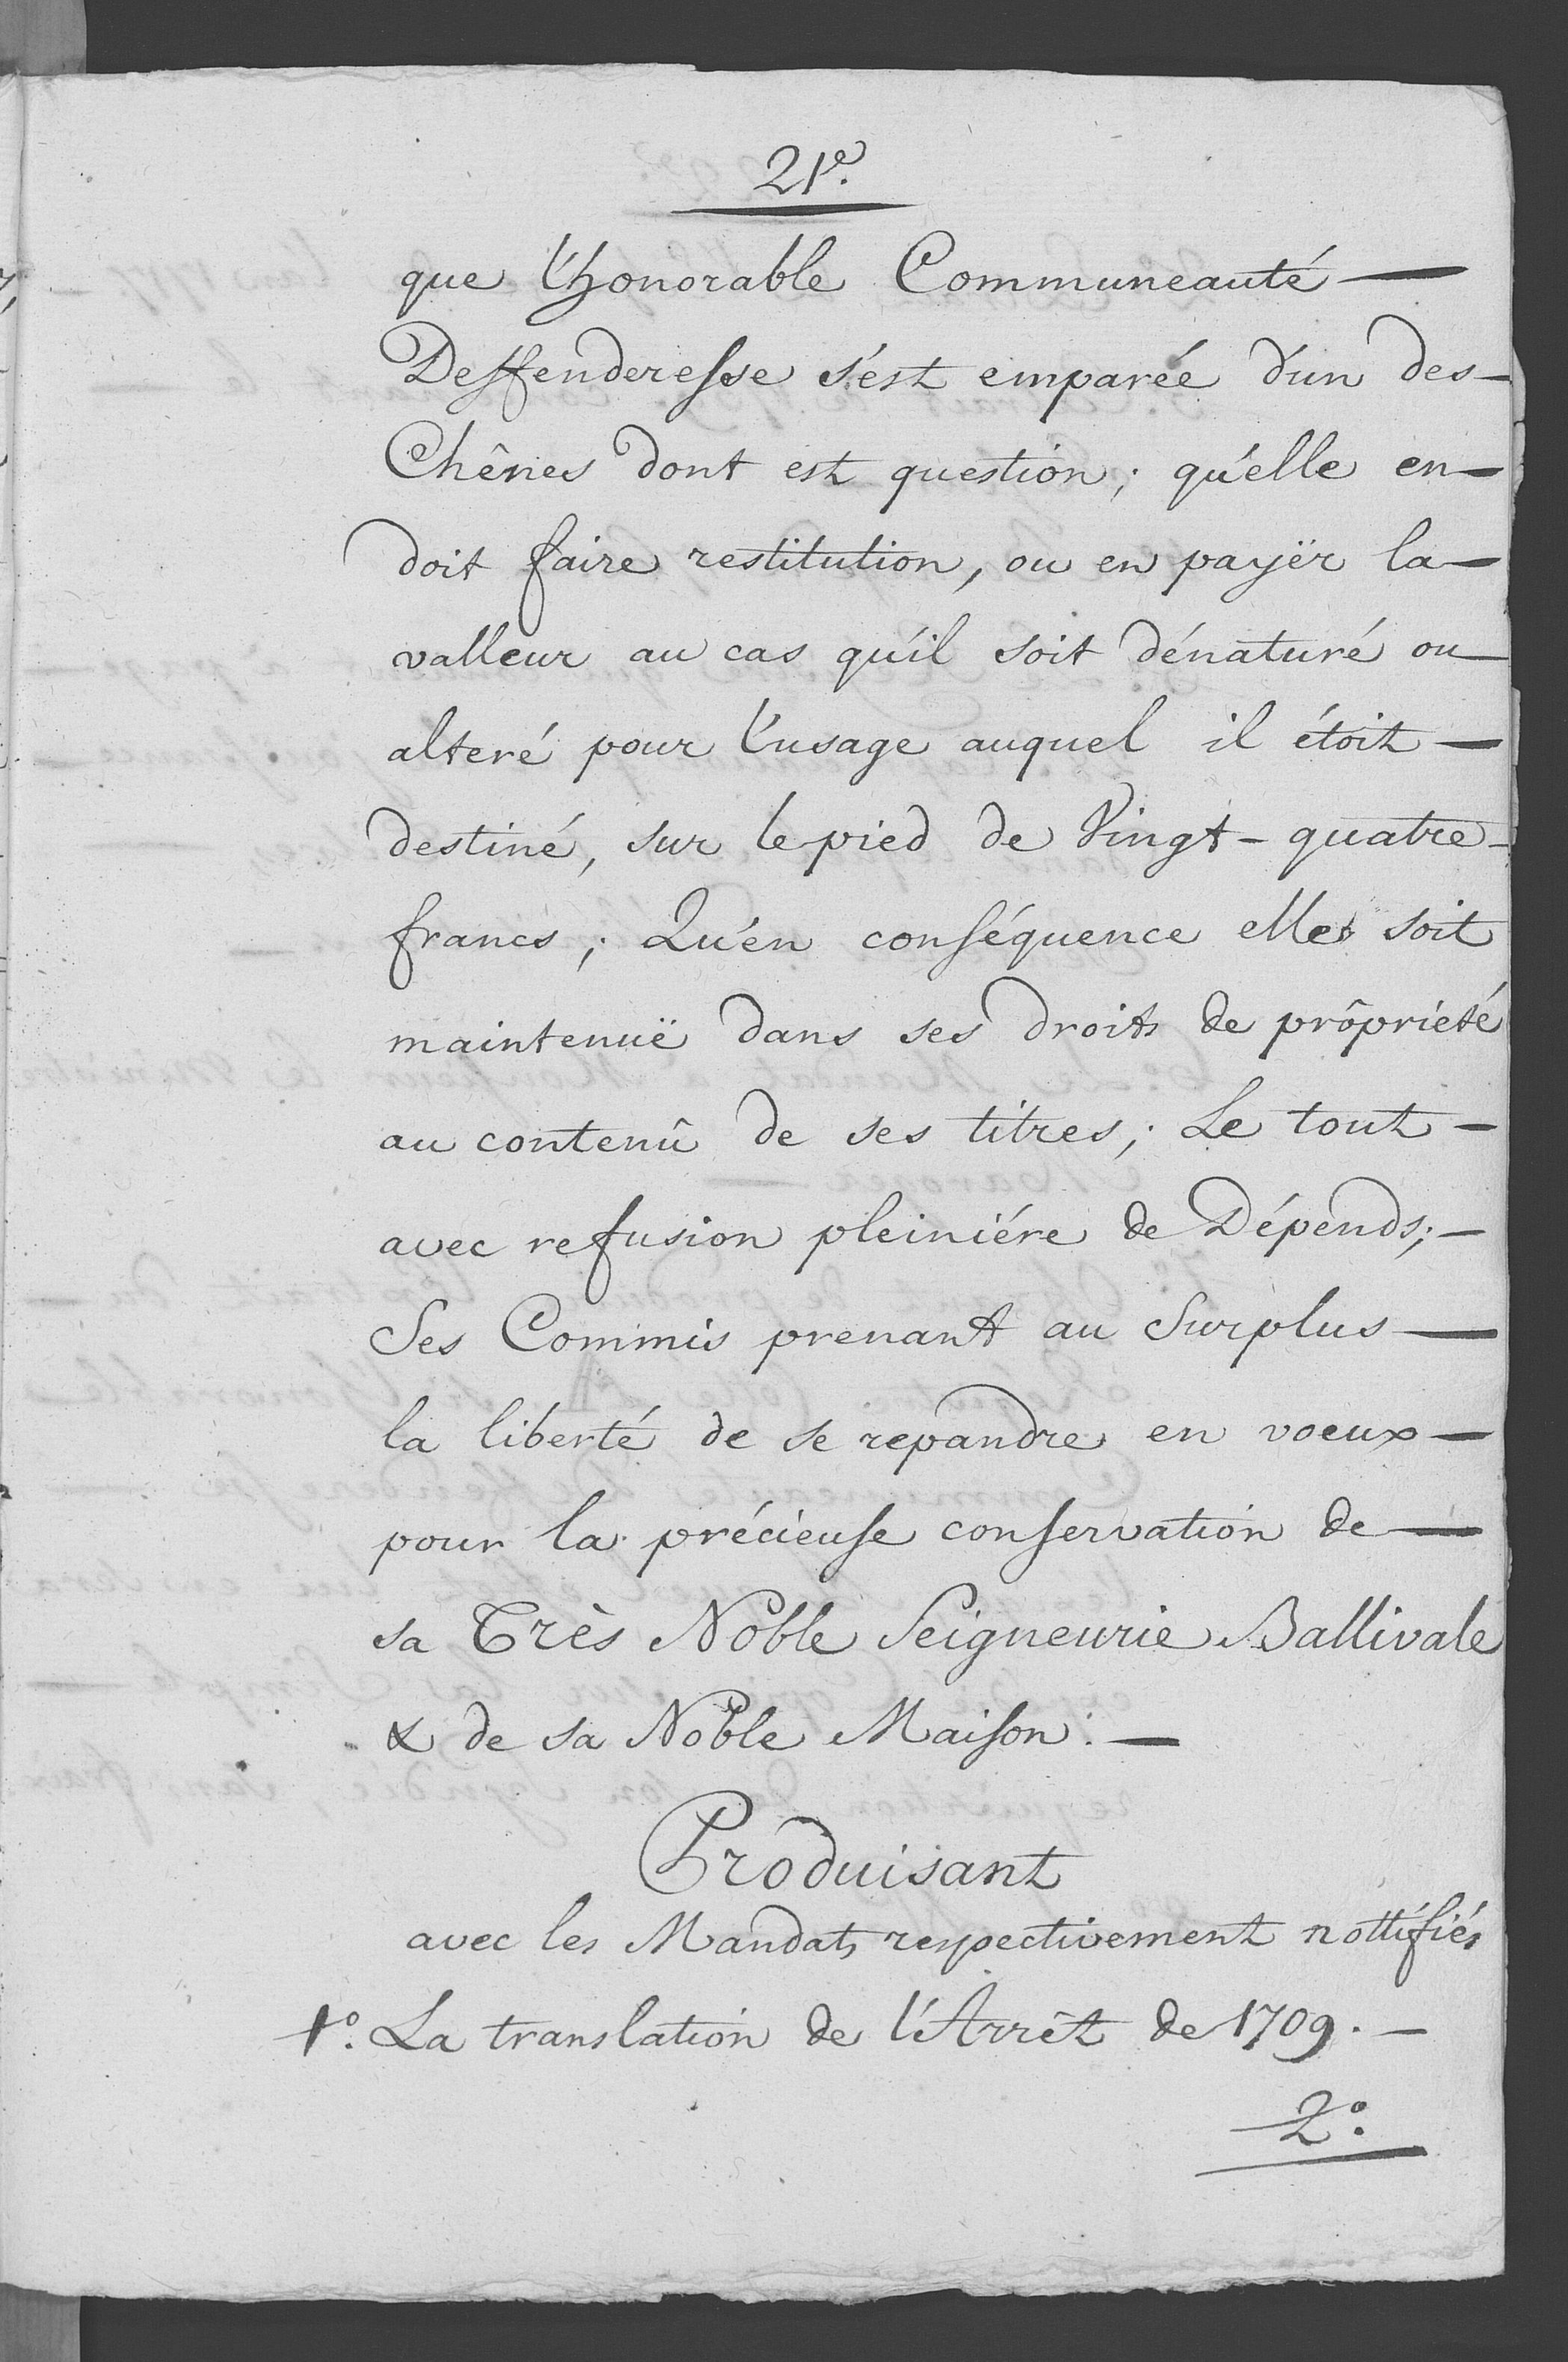 21.e
que l'honorable Communeauté —
Deffenderesse s'est emparée d'un des —
Chênes dont est question; qu'elle en —
doit faire restitution, ou en payër la —
valleur au cas qu'il soit dénaturé ou —
alteré pour l'usage auquel il étoit —
destiné, sur le pied de Vingt-quatre —
francs; Qu'en conséquence elle soit
maintenuë dans ses droits de prôprieté
au contenû de ses titres; Le tout —
avec refusion pleiniére de Dépends; —
Ses Commis prenant au Surplus —
la liberté de se repandre en voeux —
pour la précieuse conservation de —
sa Très Noble Seigneurie Ballivale
& de sa Noble Maison. —
Produisant
avec les Mandats respectivement nottifiés
1.o La translation de l'Arrêt de 1709. —
2.o